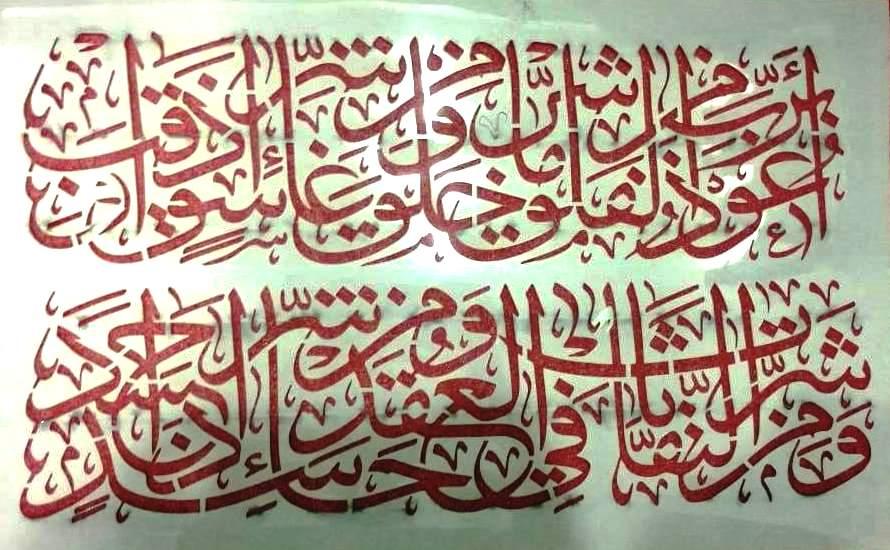 أعوذ برب الفلق من شر ما خلق ومن شر غاسق إذا وقب
ومن شر النفاثات في العقد ومن شر حاسد إذا حسد